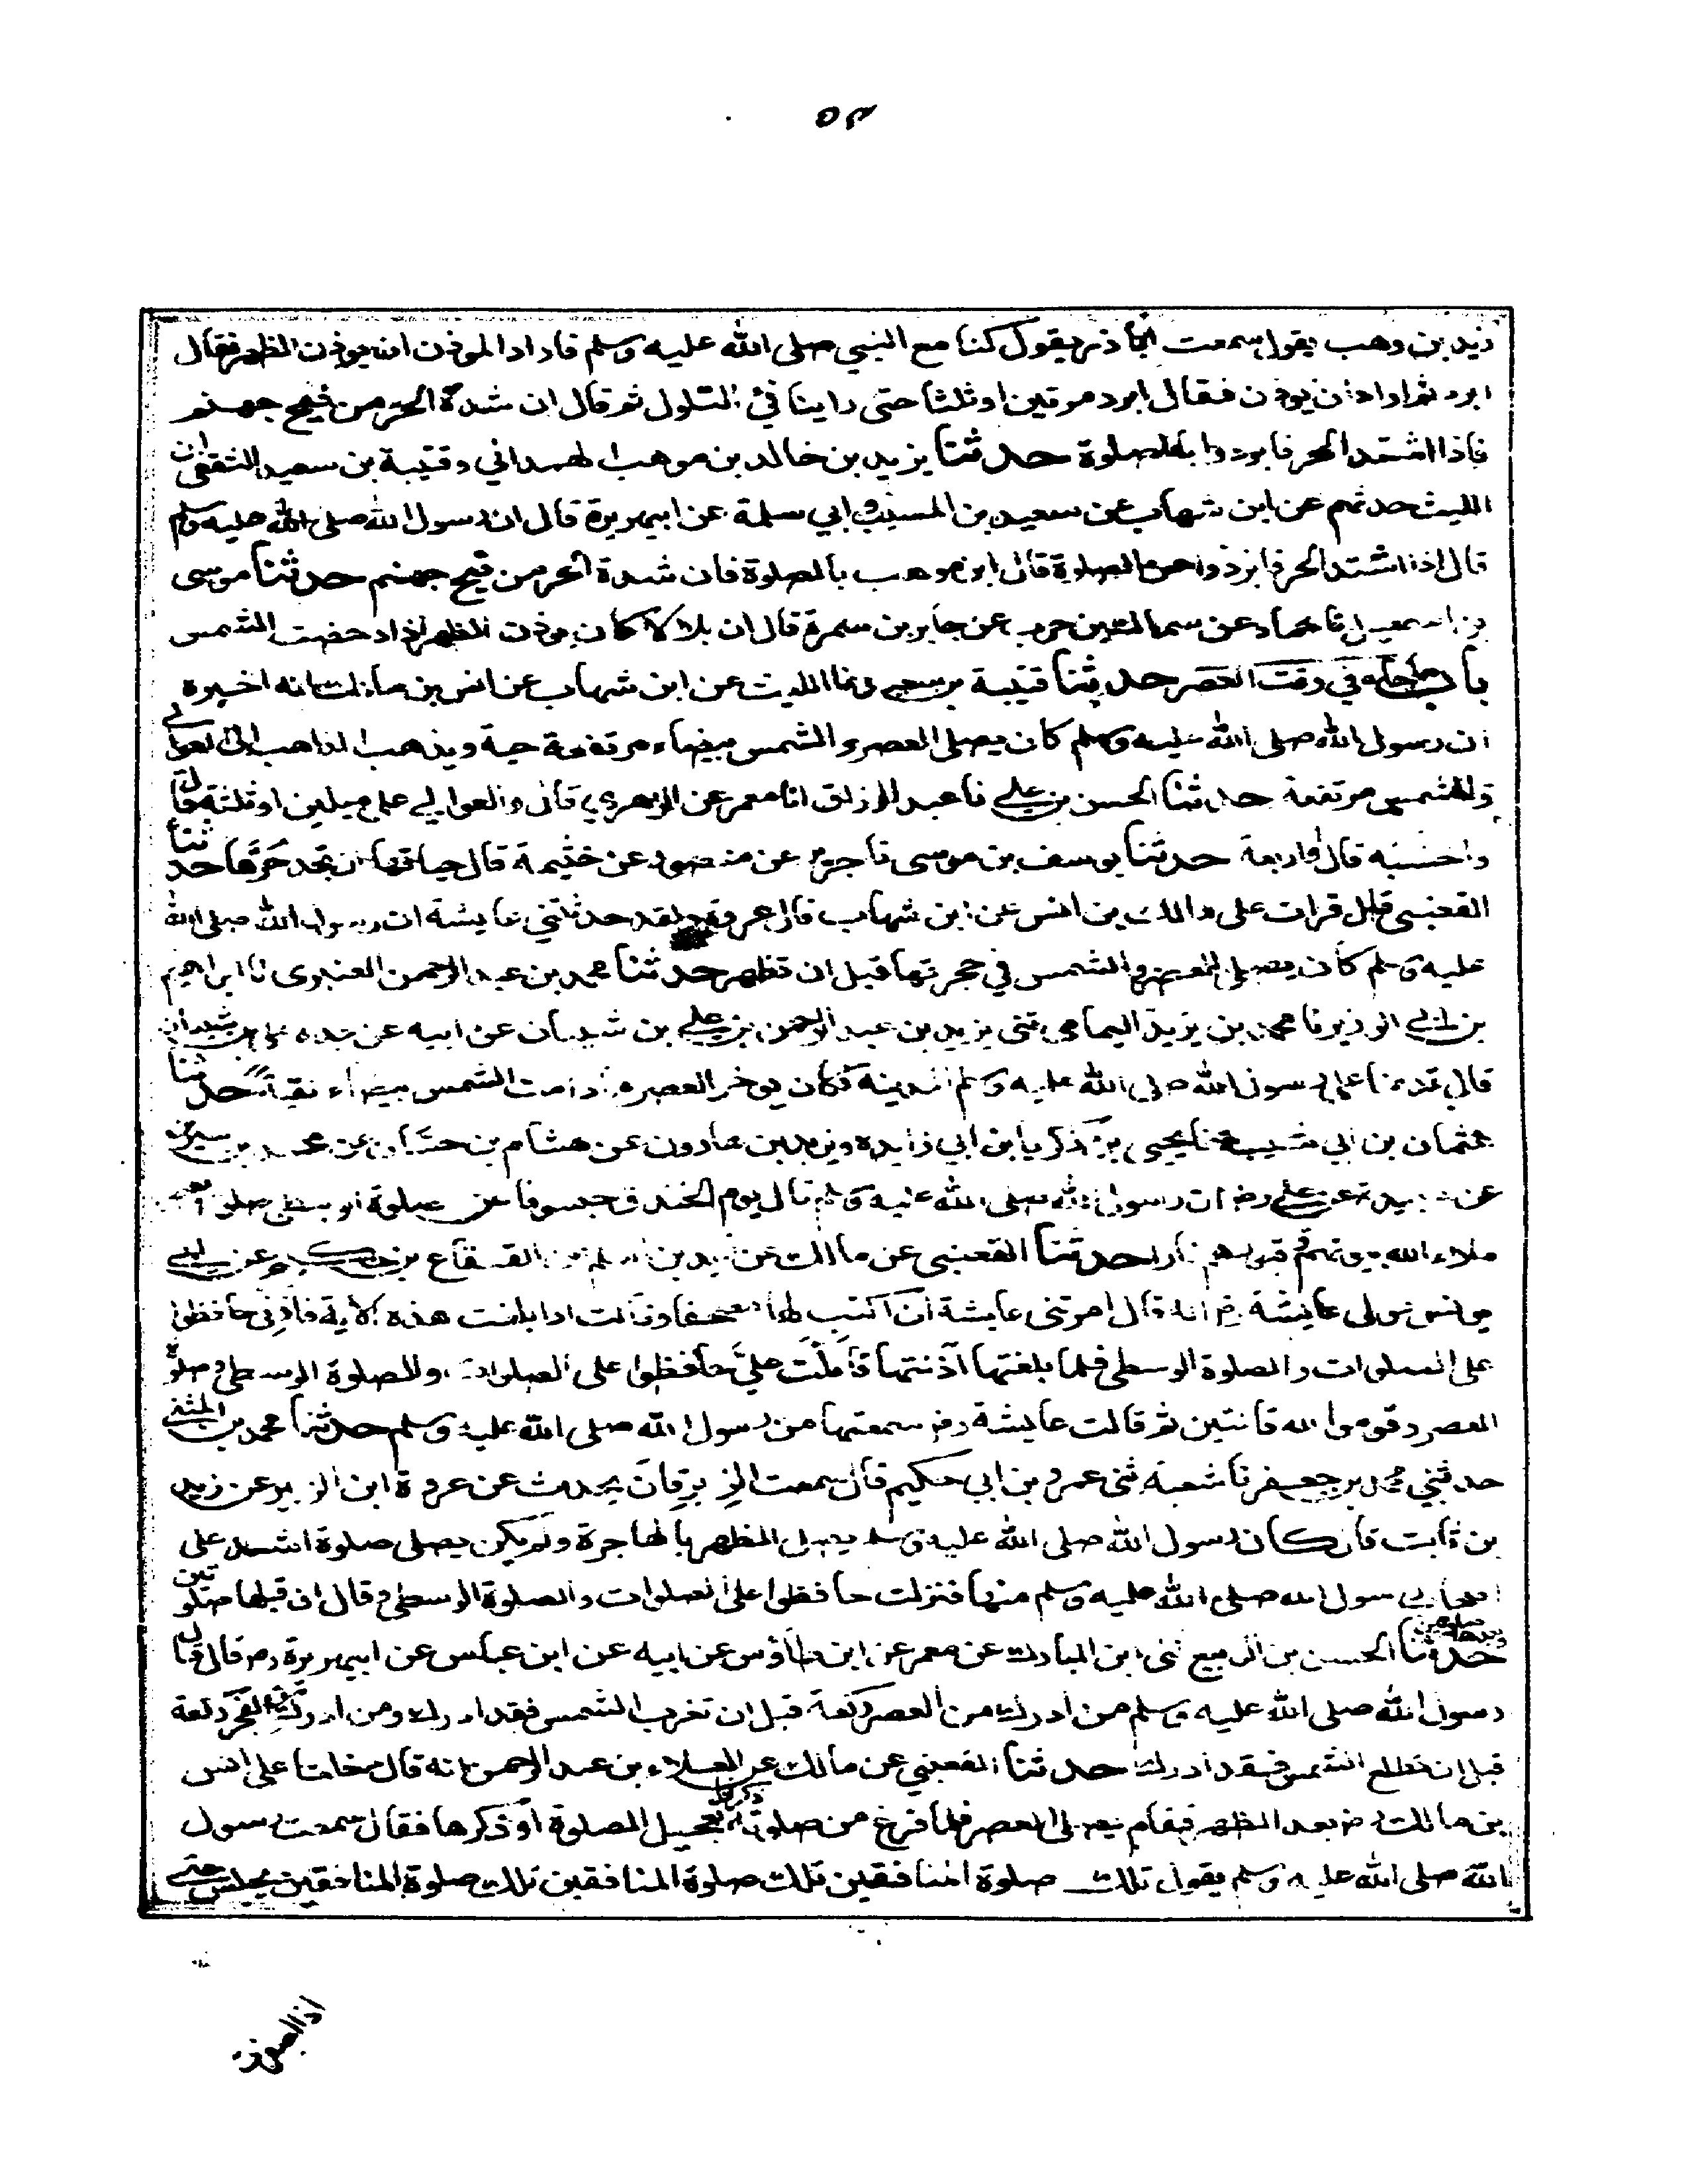 ٥٣
زيد بن وهب يقول سمعت اباذر يقول كنا مع النبي صلى الله عليه وسلم فاراد المؤذن ان يوذن الظهر فقال
ابرد ثم اراد ان يوذن فقال ابرد مرتين او ثلثا حتى راينا فئ التلول ثم قال ان شدة الحر من فيح جهنم
فاذا اشتد الحر فابردوا بالصلوة حدثنا يزيد بن خالد بن موهب الهمداني وقتيبة بن سعيد الثقفي ان
الليث حدثهم عن ابن شهاب عن سعيد بن المسيب وابي سلمة عن ابي هريرة قال ان رسول الله صلى الله عليه وسلم
قال اذا اشتد الحر فابردوا عن الصلوة قال ابن موهب بالصلوة فان شدة الحر من فيح جهنم حدثنا موسى
بن اسمعيل نا حماد عن سماك بن حرب عن جابر بن سمرة قال ان بلالا كان يوذن الظهر اذا دحضت الشمس
باب ما جاء في وقت العصر حدثنا قتيبة بن سعيد نا الليث عن ابن شهاب عن انس بن مالك انه اخبره
ان رسول الله صلى الله عليه وسلم كان يصلي العصر والشمس بيضاء مرتفعة حية ويذهب الذاهب الى العوالي
والشمس مرتفعة حدثنا الحسن بن علي نا عبد الرزاق انا معمر عن الزهري قال والعوالي على ميلين او ثلثة قال
واحسبه قال واربعة حدثنا يوسف بن موسى نا جرير عن منصور عن خثيمة قال حياتها ان تجد حرها حدثنا
القعنبي قال قرات على مالك بن انس عن ابن شهاب قال عروة ولقد حدثتني عايشة ان رسول الله صلى الله
عليه وسلم كان يصلي العصر والشمس في حجرتها قبل ان تظهر حدثنا محمد بن عبد الرحمن العنبرى نا ابراهيم
بن ابي الوزير نا محمد بن يزيد اليمامي ثنى يزيد بن عبد الرحمن بن علي بن شيبان عن ابيه عن جده علي بن شيبان
قال قدمنا على رسول الله صلى الله عليه وسلم المدينة فكان يوخر العصر ما دامت الشمس بيضاء نقية حدثنا
عثمان بن ابي شيبة نا يحيى بن زكريا بن ابي زايده ويزيد بن هارون عن هشام بن حسان عن محمد بن سيرين
عن عبيدة عن علي رض ان رسول الله صلى الله عليه وسلم قال يوم الخندق حبسونا عن صلوة الوسطى صلوة العصر
ملاء الله بيوتهم وقبورهم نارا حدثنا القعنبي عن مالك عن زيد بن اسلم عن القعقاع بن حكيم عن ابي
يونس مولى عايشة رض انه قال امرتني عايشة ان اكتب لها مصحفا وقالت اذا بلغت هذه الاية فاذني حافظوا
على الصلوات والصلوة الوسطى فلما بلغتها آذنتها فاملت علي حافظوا على الصلوات والصلوة الوسطى وصلوة
العصر وقوموا لله قانتين ثم قالت عايشة رض سمعتها من رسول الله صلى الله عليه وسلم حدثنا محمد بن المثنى
حدثني محمد بن جعفر نا شعبة ثنى عمرو بن ابي حكيم قال سمعت الزبرقان يحدث عن عروة ابن الزبير عن زيد
بن ثابت قال كان رسول الله صلى الله عليه وسلم يصلي الظهر بالهاجرة ولم يكن يصلي صلوة اشد على
اصحاب رسول الله صلى الله عليه وسلم منها فنزلت حافظوا على الصلوات والصلوة الوسطى وقال ان قبلها صلوتين
وبعدها صلوتين حدثنا الحسن بن الربيع ثنى ابن المبارك عن معمر عن ابن طاؤس عن ابيه عن ابن عباس عن ابي هريرة رض قال قال
رسول الله صلى الله عليه وسلم من ادرك من العصر ركعة قبل ان تغرب الشمس فقد ادرك ومن ادرك من الفجر ركعة
قبل ان تطلع الشمس فقد ادرك حدثنا القعنبي عن مالك عن العلاء بن عبد الرحمن انه قال دخلنا على انس
بن مالك رض بعد الظهر فقام يصلي العصر فلما فرغ من صلوته ذكرنا تعجيل الصلوة او ذكرها فقال سمعت رسول
الله صلى الله عليه وسلم يقول تلك صلوة المنافقين تلك صلوة المنافقين تلك صلوة المنافقين يجلس حتى